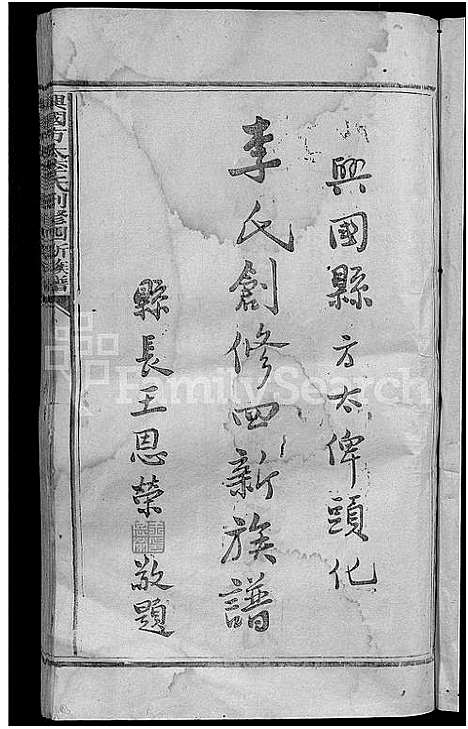 興國縣方太俾頭化
李氏創修四新族譜
縣長王恩荣
敬題
興國方太李氏創修四新族譜
FamilySearch